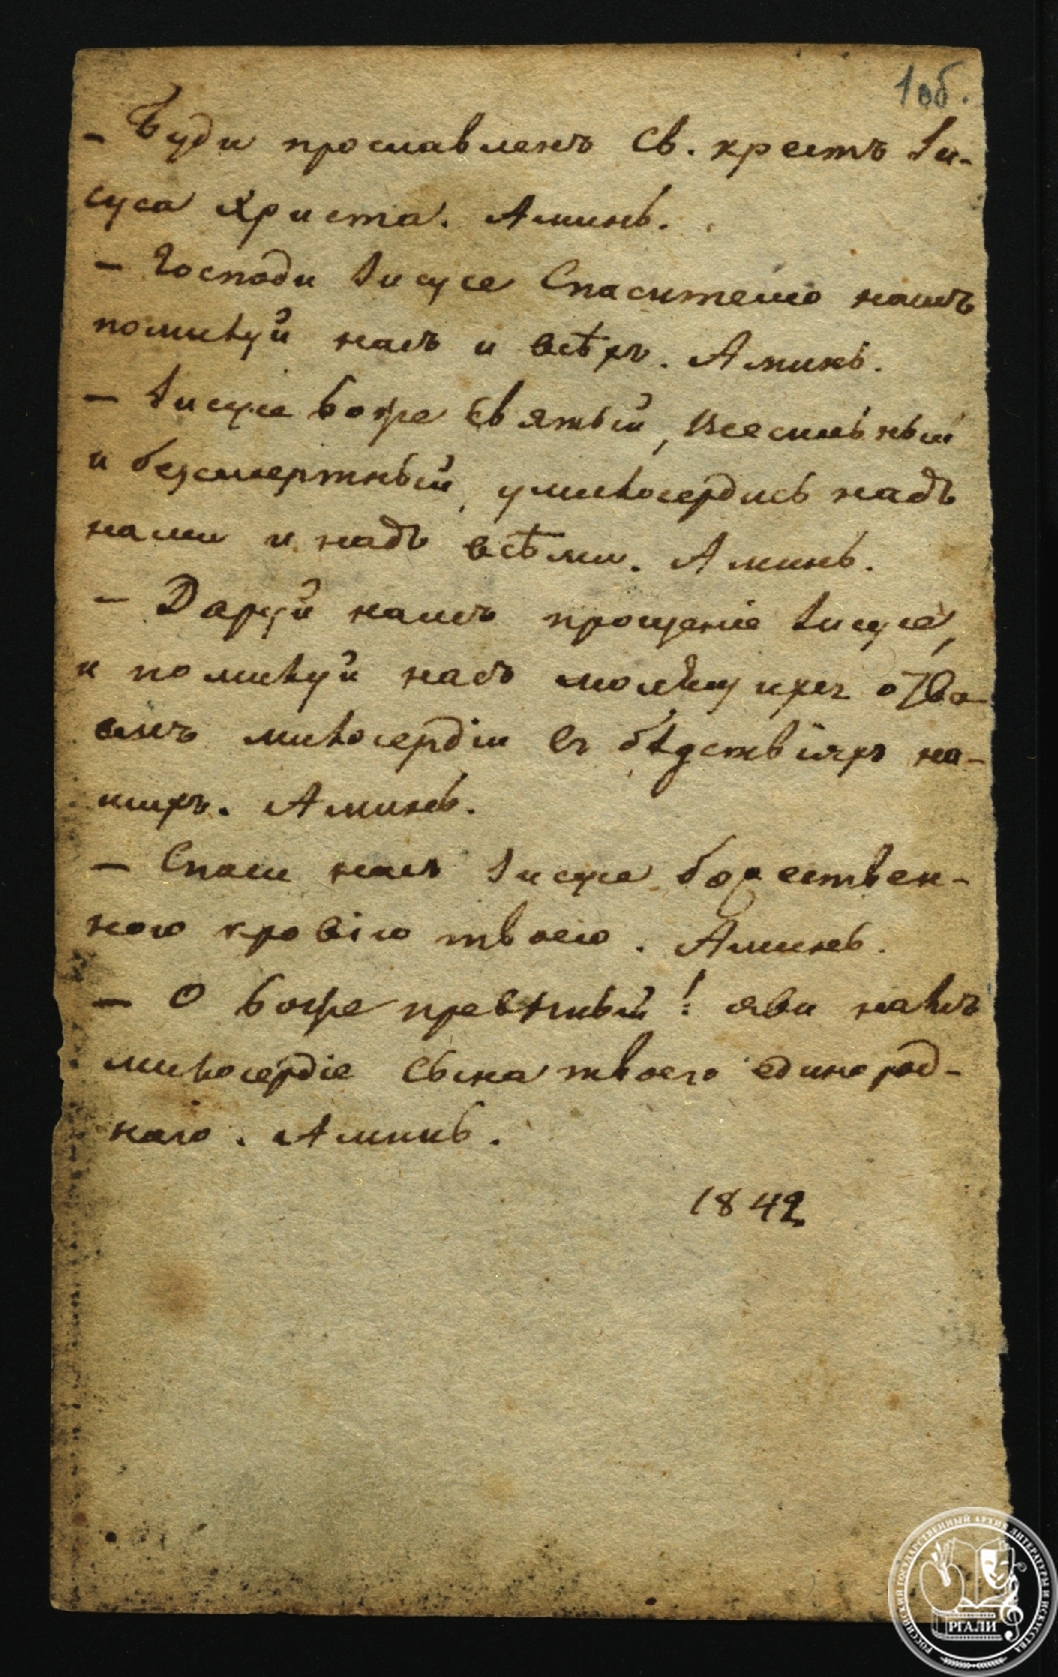 1 об.
– Буди прославленъ Св. крестъ Іи-
суса Христа. Аминь.
– Господи Іисусе Спасителю нашъ
помилуй насъ и всѣхъ. Аминь.
– Іисусе Боже Святый, Всесильный
и безсмертный, умилосердись надъ
нами и надъ всѣми. Аминь.
– Даруй намъ прощеніе Іисусе,
и помилуй насъ молящихъ о
милосердіи въ бѣдствіяхъ на-
шихъ. Аминь.
– Спаси насъ Іисусе божествен-
ною кровію твоею. Аминь.
– О Боже превѣчный! яви намъ
милосердіе Сына твоего единород-
наго. Аминь.
1842
РОССИЙСКИЙ ГОСУДАРСТВЕННЫЙ АРХИВ ЛИТЕРАТУРЫ И ИСКУССТВА
РГАЛИ